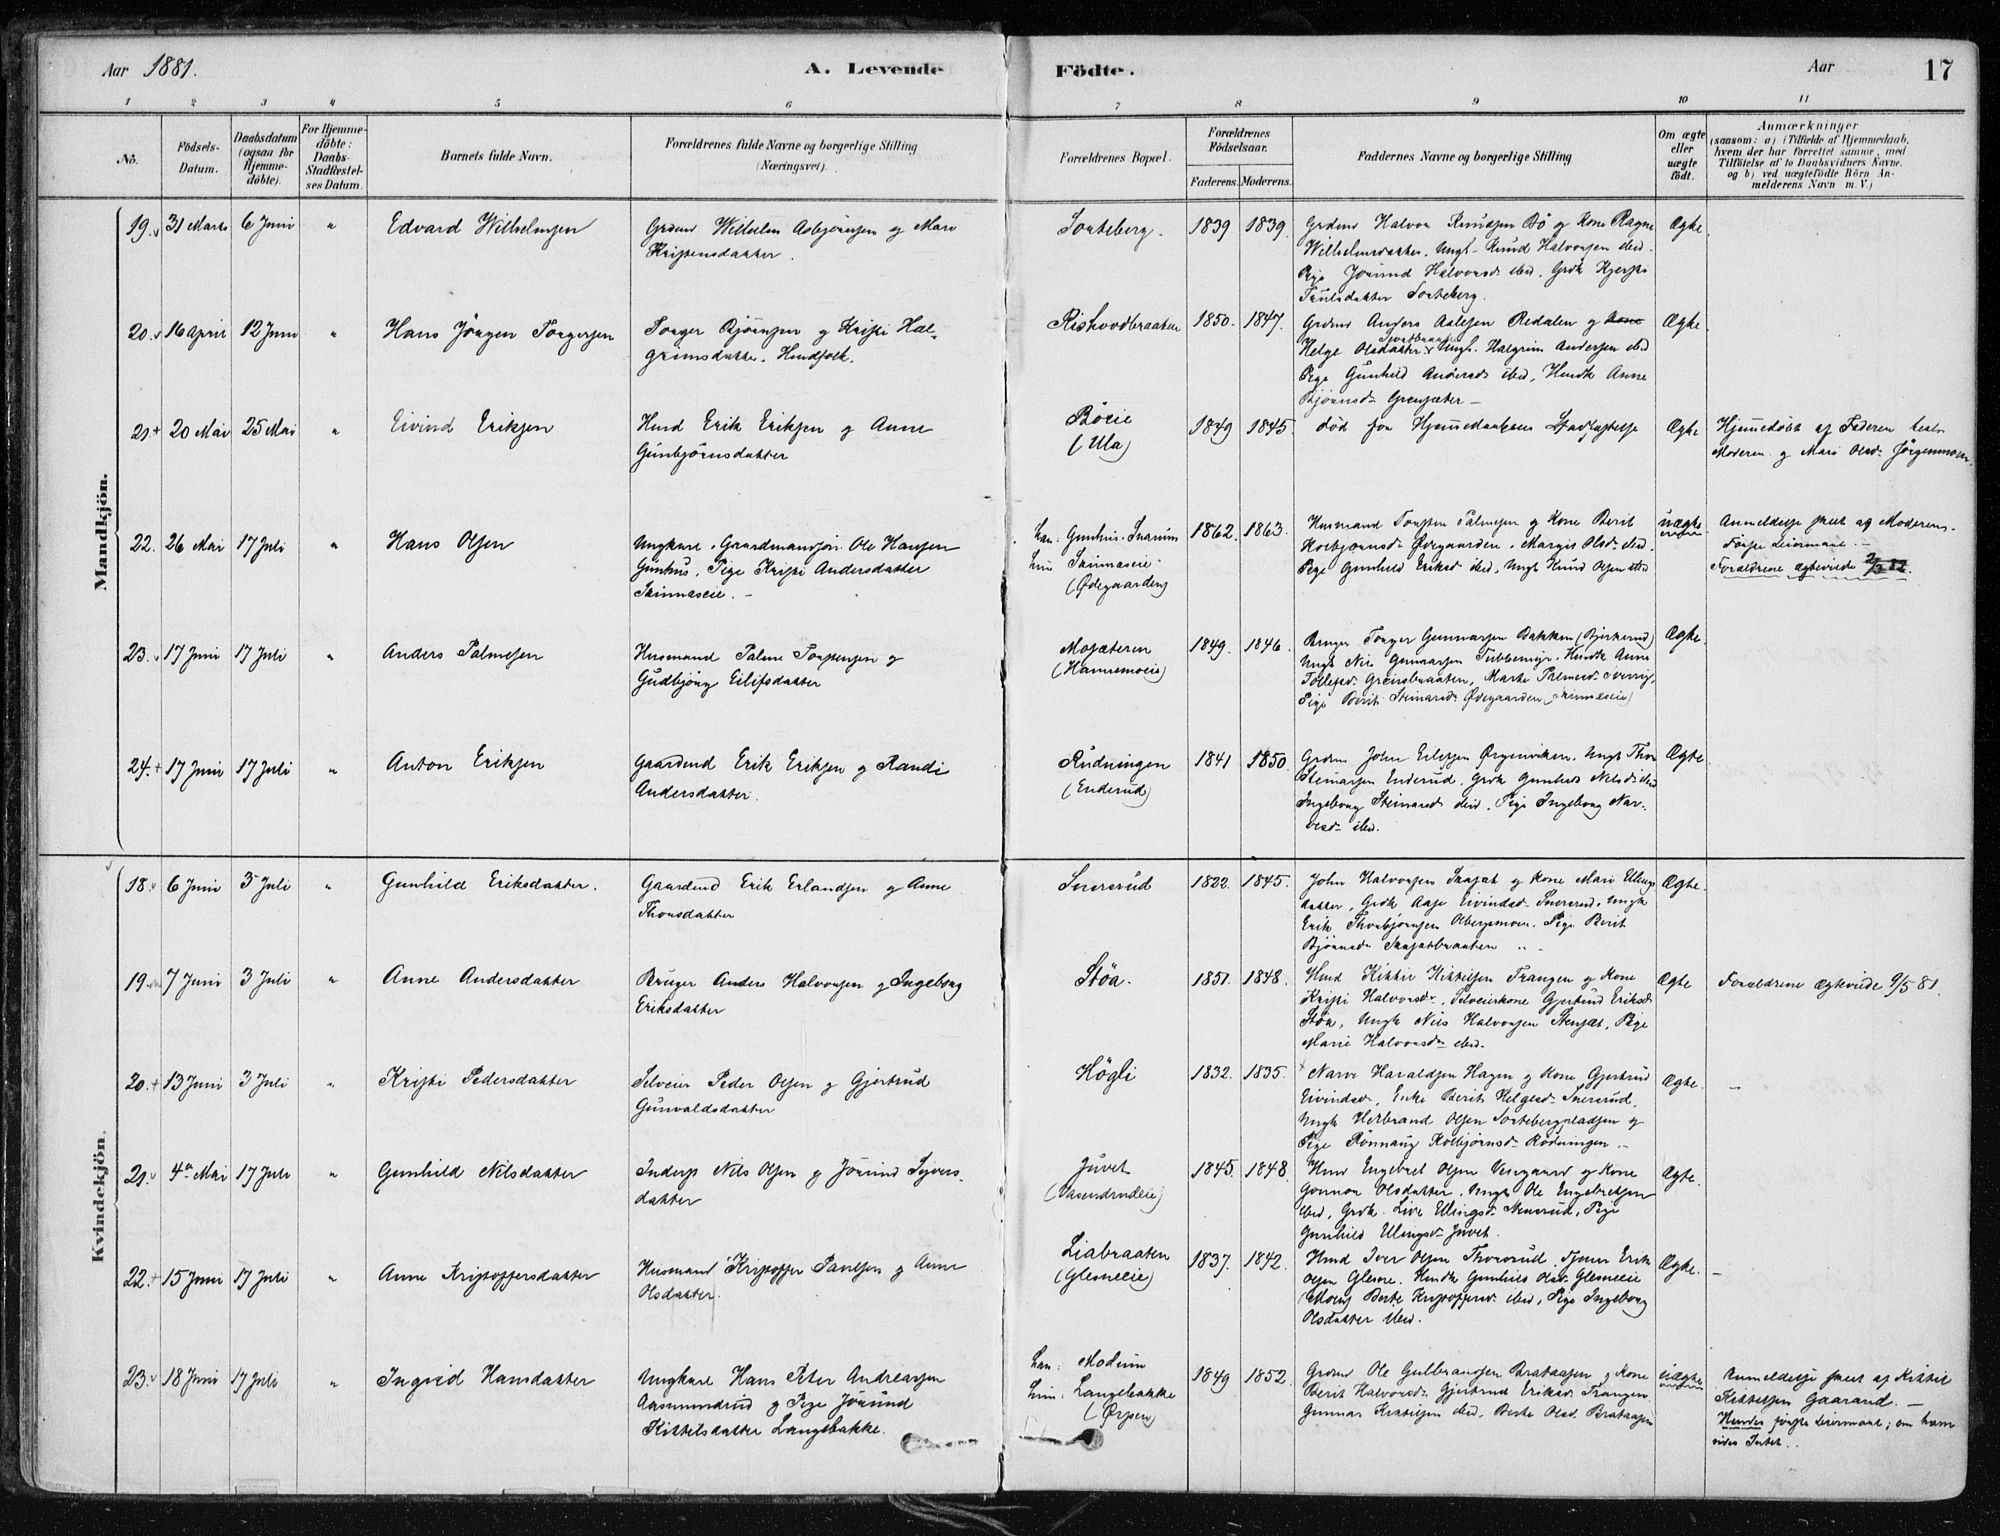 Aar 1881.
A. Levende Födte.
Aar 17
1 2 3 4 5 6 7 8 9 10 11
No.
Födsels-
Datum.
Daabsdatum
(ogsaa for
Hjemme-
döbte).
For Hjemme-
döbte:
Daabs-
Stadfæstel-
ses Datum.
Barnets fulde Navn.
Forældrenes fulde Navne og borgerlige Stilling
(Næringsvei).
Forældrenes Bopæl.
Forældrenes
Födselsaar.
Faderens. Moderens.
Faddernes Navne og borgerlige Stilling
Om ægte
eller
uægte
födt.
Anmærkninger
(saasom: a) i Tilfælde af Hjemmedaab,
hvem der har forrettet samme, med
Tilföielse af to Daabsvidners Navne.
og b) ved uægtefödte Börn An-
melderens Navn m. V.)
Mandkjön.
19. 31 Marts 6 Juni " Edvard Wilhelmsen
Grdmd Wilhelm Asbjörnsen og Mari
Kristensdatter.
Sorteberg. 1839 1839.
Grdmd Halvor Knudsen Bö og Kone Ragne
Wilhelmsdatter, Ungk. Knud Halvorsen ibid.
Pige Jörund Halvorsd. ibid. Grdk Kjersti
Paulsdatter Sorteberg.
Ægte.
20. 16 April 12 Juni " Hans Jörgen Torgersen
Torger Björnsen og Kristi Hal-
grimsdatter. Husfolk.
Rishovdbraaten 1850. 1847.
Grdmd Anders Redalen og Kone
Helge Olsdatter Ungk. Halgrim Andersen ibid
Pige Gunhild Andersd. ibid, Husk Anne
Björnsd. Grensæter –
Ægte
21 + 20 Mai 25 Mai " Eivind Eriksen
Husmd Erik Eriksen og Anne
Gunbjörnsdatter
Börie
(Ula)
1849 1845.
död för Hjemmedaabens Stadfæstelse
Ægte
Hjemmedöbt af Faderen test.
Moderen og Mari Olsd. Jørgenmoen.
22. 26 Mai 17 Juli " Hans Olsen
Ungkarl, Gaardmandssön Ole Hansen
Gunhus, Pige Kristi Andersdatter
Skinnæseie. –
han: Gunhus, Snarum
hun Skinnæseie.
(Ødegaarden)
1862. 1863.
Husmand Torsten Palmesen og Kone Berit
Kolbjörnsd. Ødegaarden, Margit Olsd. ibid.
Pige Gunhild Eriksd ibid, Ungk Knud Olsen ibid
uægte
Anmeldelse skeet af Moderen.
Förste Leiermaal. –
Forældrene ægteviede 2/3 82.
23. 17 Juni 17 Juli " Anders Palmesen
Husmand Palme Torstensen og
Gudbjörg Eilifsdatter
Mosæteren
(Hamremoeie)
1849. 1846.
Bruger Torger Gunnarsen Bakken (Bjerkerud)
Ungk Nils Gunnarsen Tubbensyr, Husk Anne
Tollefsd. Greinsbraaten, Marte Palmesd.
Pige Berit Steinarsd. Ødegaarden (Skinnæseie)
Ægte.
24. + 17 Juni 17 Juli " Anton Eriksen
Gaardmd Erik Eriksen og Randi
Andersdatter.
Rudningen
(Enderud)
1841 1850.
Grdmd John Ørgenviken. Ungk Thor
Steinarsen Enderud, Grdk Gunhild Nilsd. ibid
Ingeborg Steinarsd. ibid, Pige Ingeborg Nar-
vesd. ibid.
Ægte
Kvindekjön.
18. 6 Juni 3 Juli " Gunhild Eriksdatter.
Gaardmd Erik Erlandsen og Anne
Thorsdatter
Snersrud 1822. 1845.
John Halvorsen Skajæt og Kone Mari Ellings
datter, Grdk Aase Eivindsd. Snersrud, Ungk
Erik Thorbjörnsen Olbergsmoen. Pige Berit
Björnsd. "
Ægte.
19. 7 Juni 3 Juli " Anne Andersdatter
Bruger Anders Halvorsen og Ingeborg
Eriksdatter
Stöa. 1851. 1848.
Husmd Kittil Kittilsen Trangen og Kone
Kristi Halvorsd., Selveierkone Gjertrud Eriksd.
Stöa, Ungk Nils Halvorsen Stensæt, Pige
Marie Halvorsd. ibid.
Ægte
Forældrene Ægteviede 9/5 81.
20. + 13 Juni 3 Juli " Kristi Pedersdatter
Selveier Peder Olsen og Gjertrud
Gunvaldsdatter
Högli 1832. 1835.
Narve Haraldsen Hagen og Kone Gjertrud
Eivindsd, Enke Berit Helgesd. Snersrud,
Ungk Herbrand Olsen Sortebergpladsen og
Pige Rönnaug Kolbjörnsd. Rödningen. –
Ægte.
–
21. 4de Mai 17 Juli " Gunhild Nilsdatter
Inderst Nils Olsen og Jörund Syvers-
datter
Juvet
1845. 1848.
Husmd Engebret Olsen og Kone
Gonnor Olsdatter, Ungk Ole Engebretsen
ibid, Grdk. Live Ellingsd. Snersrud, Pige
Gunhild Ellingsd. Juvet.
Ægte.
22. + 15 Juni 17 Juli " Anne Kristoffersdatter
Husmand Kristoffer Paulsen og Anne
Olsdatter.
Liabraaten
(Glesneeie)
1837. 1842.
Husmd Iver Olsen Thorsrud. Tjener Erik
Olsen Glesne. Husk Gunhild Olsd. Glesneeie
(Moen) Berte Kristoffersd. ibid, Pige Ingeborg
Olsdatter ibid.
Ægte.
–
23. 18 Juni 17 Juli " Ingrid Hansdatter
Ungkarl Hans Peter Andreassen
Aasmundrud og Pige Jörund
Kittilsdatter Langebakke.
han: Modum
hun: Langebakke
(Ørpen)
1849 1852.
Grdmd Ole Gulbrandsen Brataasen og Kone
Berit Halvorsd. Gjertrud Eriksd. Trangen
Gunnar Kittilsen ibid. Berte Olsd. Brataasen
uægte
Anmeldelse skeet af Kittil
Kittilsen Gaarand. –
Hendes förste Leiermaal; om ham
vides Intet.